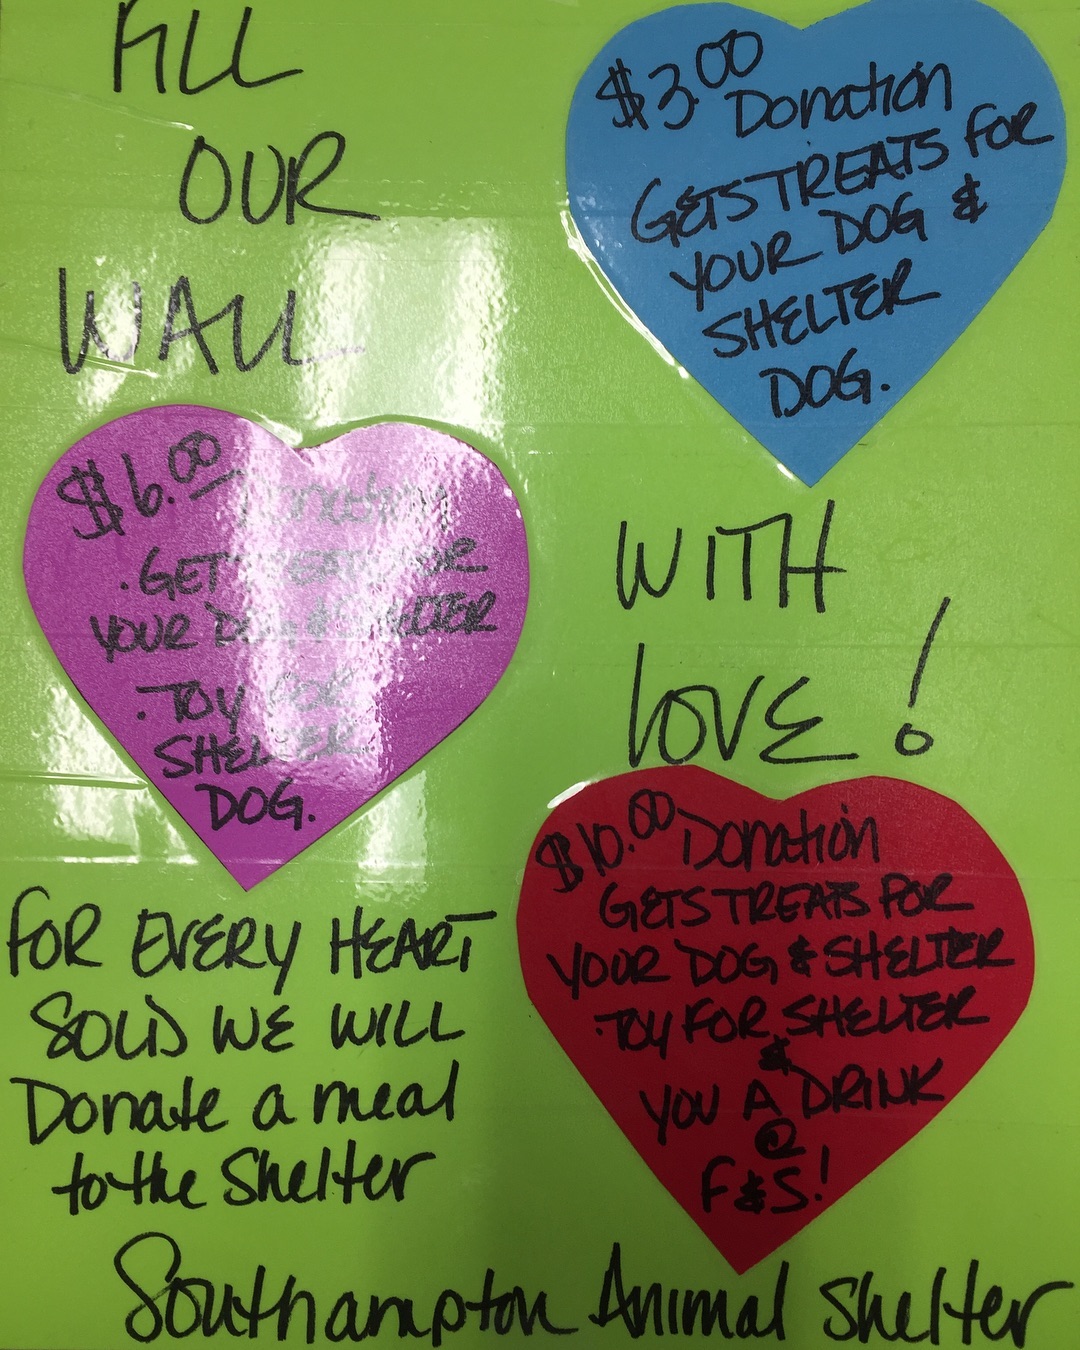 FILL
OUR
WALL
$3.00 Donation
GETS TREATS FOR
YOUR DOG &
SHELTER
DOG.
$6.00 Donation
. GET TREATS FOR
YOUR DOG & SHELTER
. TOY FOR
SHELTER
DOG.
WITH
LOVE!
$10.00 Donation
GETS TREATS FOR
YOUR DOG & SHELTER
. TOY FOR SHELTER
&
YOU A DRINK
@
F&S!
FOR EVERY HEART
SOLD WE WILL
Donate a meal
to the Shelter
Southampton Animal Shelter